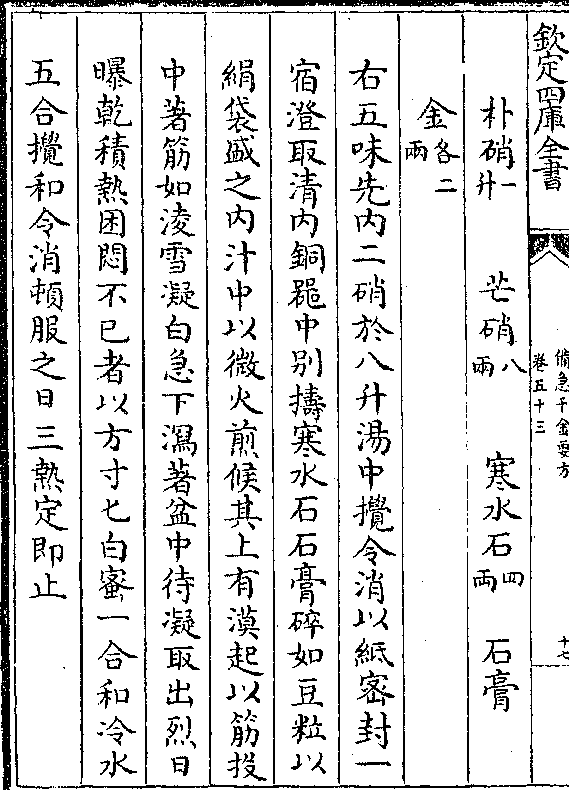 欽定四庫全書
備急千金要方
卷五十三
十七
朴硝一升 芒硝八兩 寒水石四兩 石膏
金各二兩
右五味先内二硝於八升湯中攪令消以紙密封一
宿澄取清内銅器中别擣寒水石石膏碎如豆粒以
絹袋盛之内汁中以微火煎候其上有漠起以筯投
中著筯如淩雪凝白急下瀉著盆中待凝取出烈日
曝乾積熱困悶不已者以方寸匕白蜜一合和冷水
五合攪和令消頓服之日三熱定即止